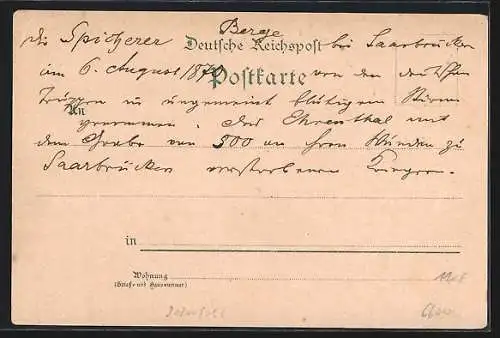 die Spicherer Berge bei Saarbrücken
Deutsche Reichspost
am 6. August 1870 von den deutschen
Postkarte
Truppen in ungemein blutigem Sturm
An
genommen. Das Ehrenthal mit
dem Grabe von 500 an ihren Wunden zu
Saarbrücken verstorbenen Kriegern.
in
Wohnung
(Straße und Hausnummer)